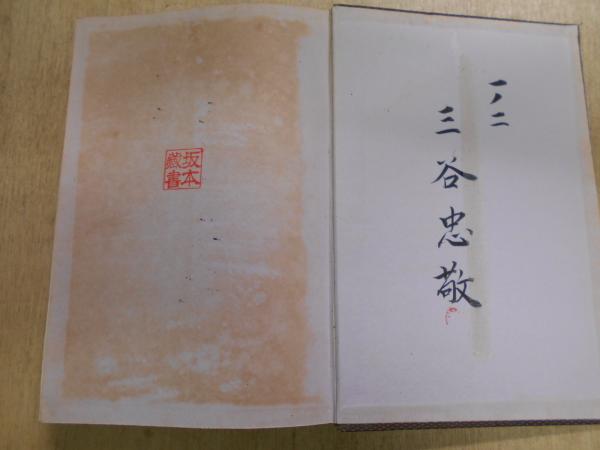 一ノ二
三谷忠敬
坂本
蔵書